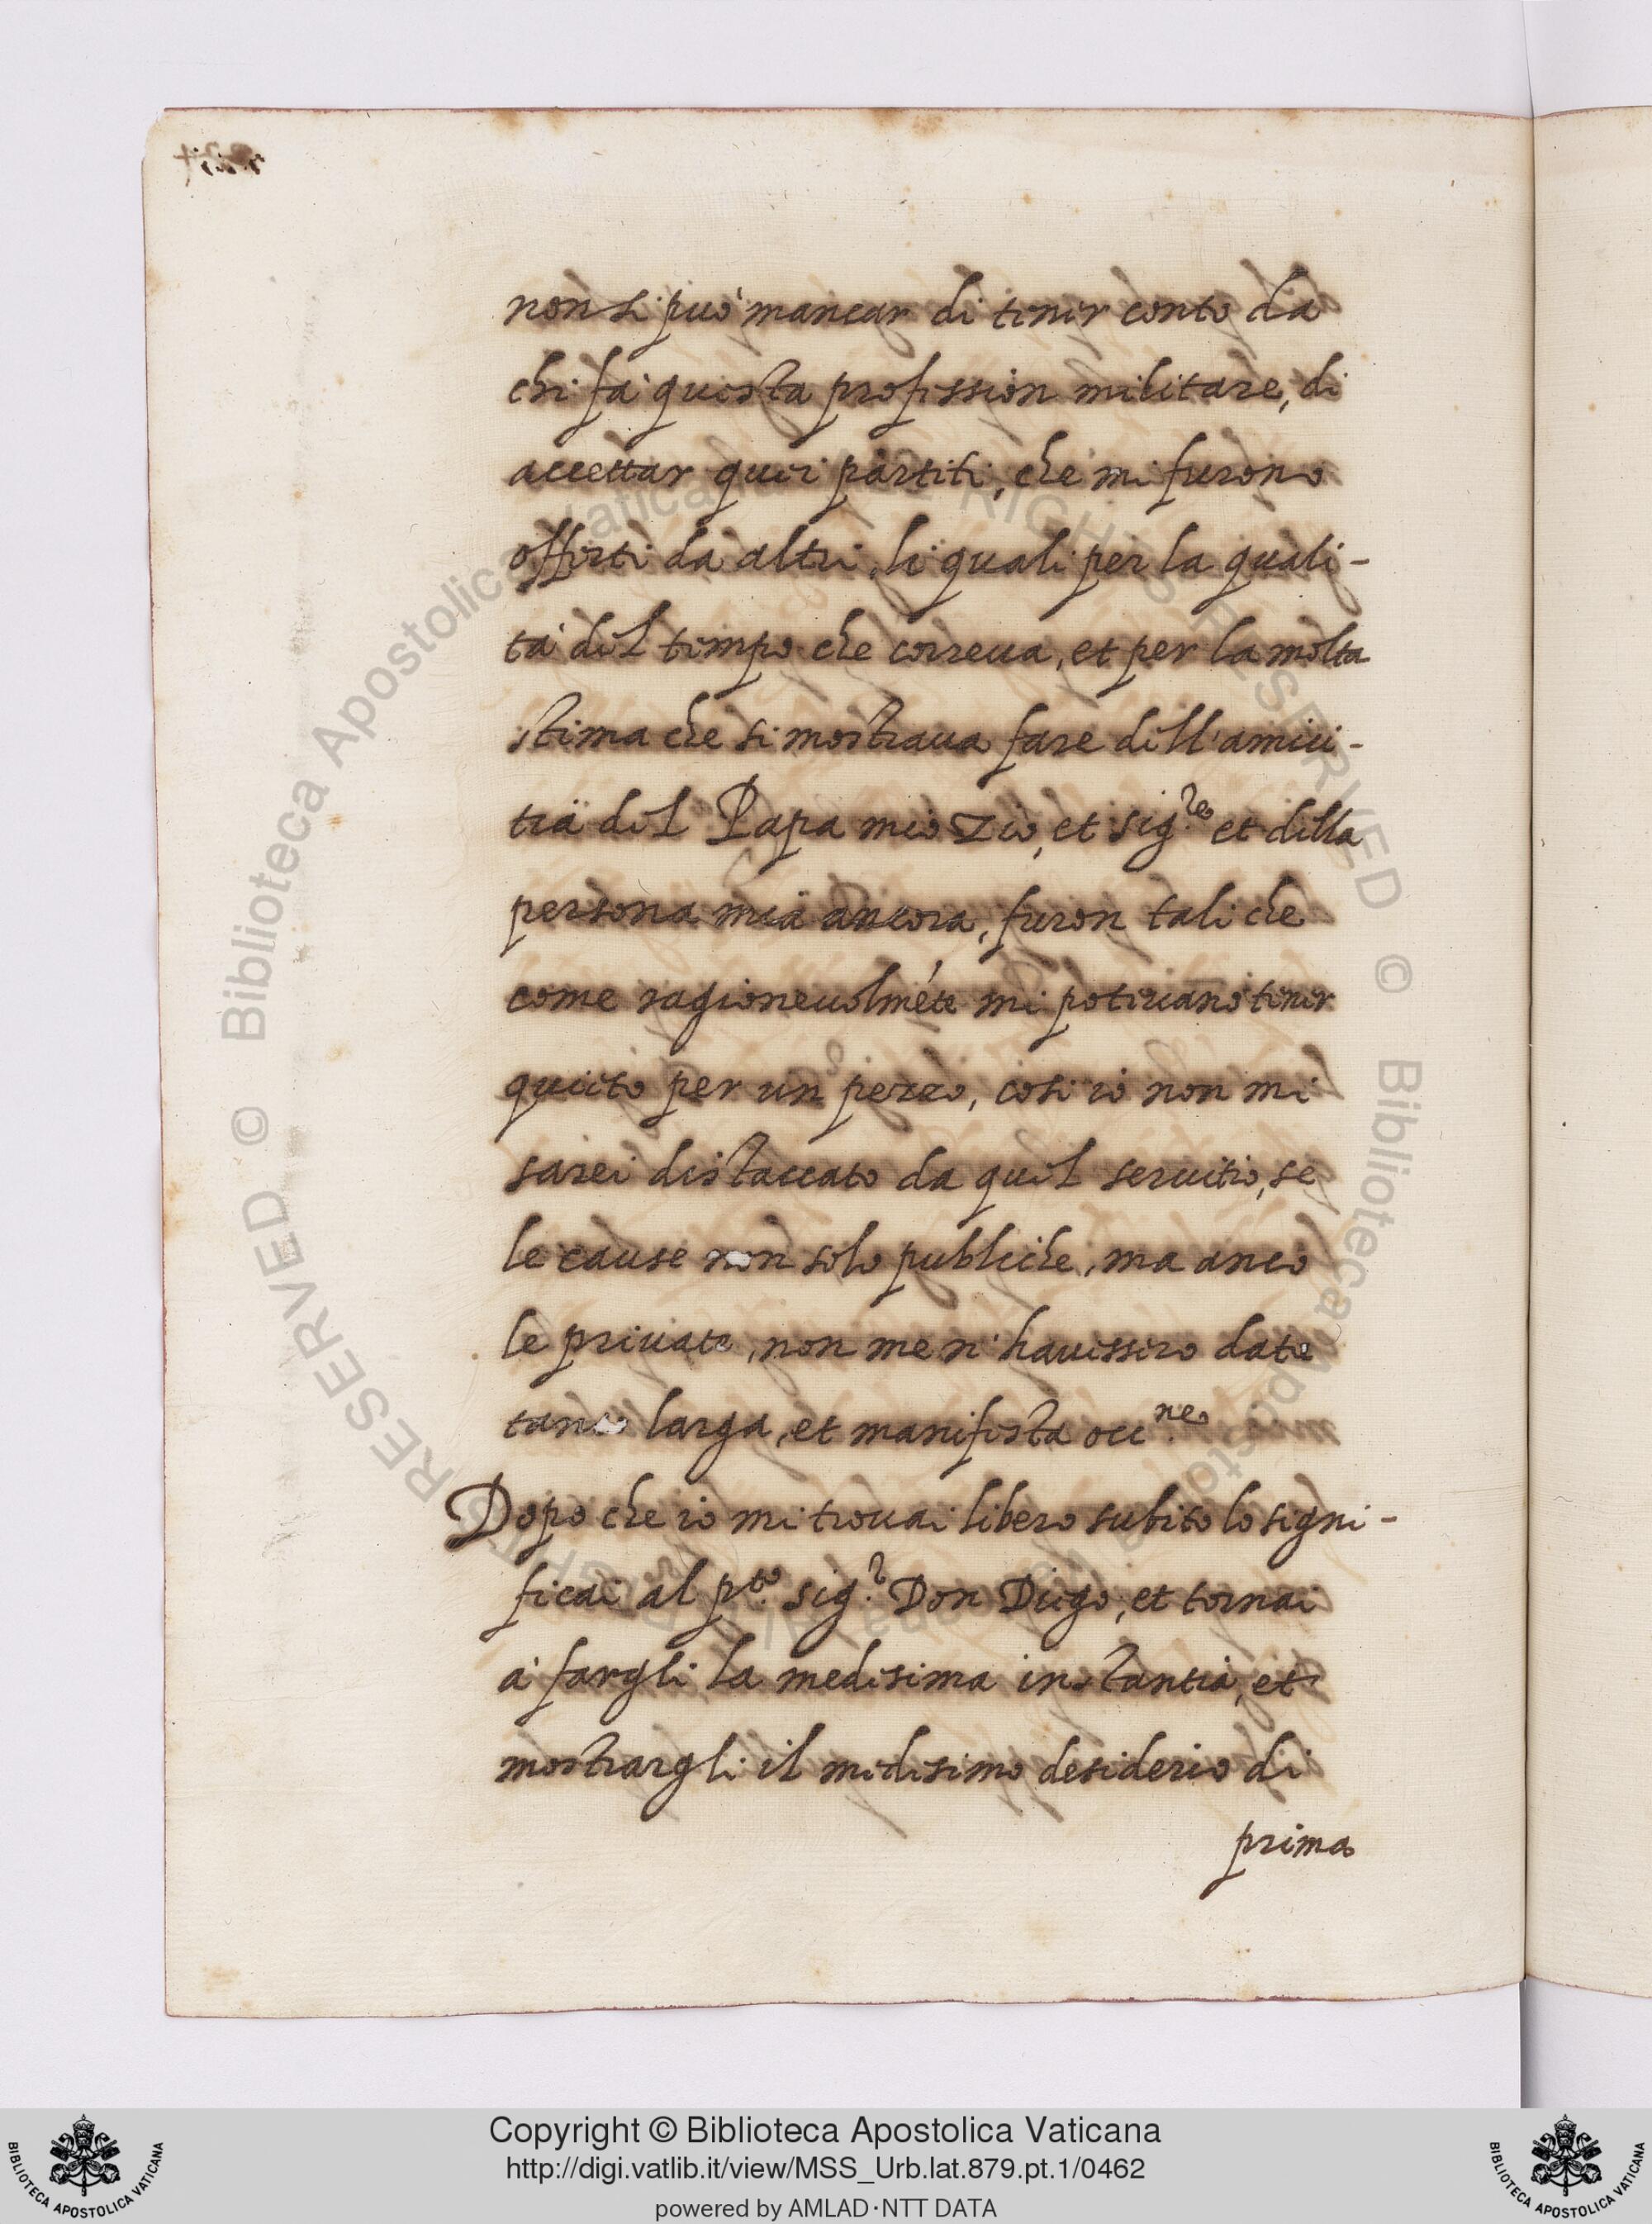 non si può mancar di tener conto da
chi fa' questa profession militare, di
accettar quei partiti, che mi furono
offerti da altri, li quali per la quali-
ta' del tempo che correua, et per la molta
stima che si mostraua fare dell'amici-
tia del Papa mio Zio, et sig.re et della
persona mia ancora, furon tali che
come ragioneuolméte mi poteuano tener
quieto per un pezzo, cosi io non mi
sarei distaccato da quel seruitio, se
le cause non solo publiche, ma anco
le priuate, non me n'hauessero data
larga, et manifesta occ.ne
Dopo che io mi trouai libero subito lo signi-
ficai al p.to sig.r Don Diego, et tornai
a' fargli la medesima instantia, et
mostrargli il medesimo desiderio di
prima
Biblioteca Apostolica Vaticana
ALL RIGHTS RESERVED © Biblioteca Apostolica Vaticana
Copyright © Biblioteca Apostolica Vaticana
http://digi.vatlib.it/view/MSS_Urb.lat.879.pt.1/0462
powered by AMLAD·NTT DATA
BIBLIOTECA APOSTOLICA VATICANA
BIBLIOTECA APOSTOLICA VATICANA